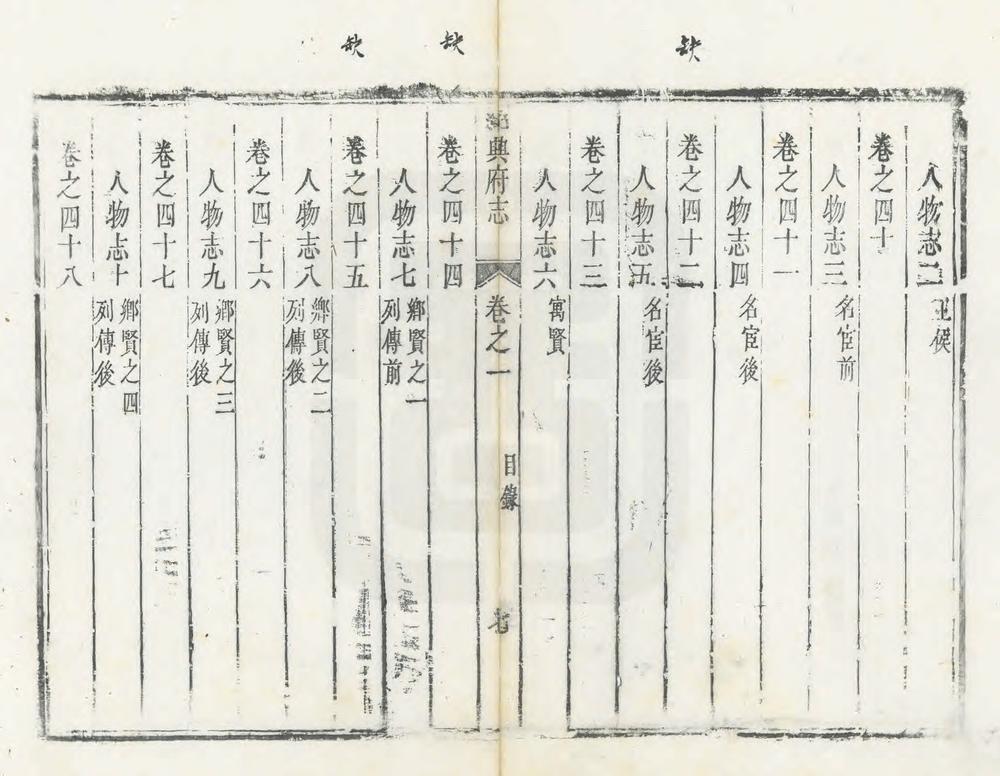 缺
缺
缺
人物志二 王侯
卷之四十
人物志三 名宦前
卷之四十一
人物志四 名宦後
卷之四十二
人物志五 名宦後
卷之四十三
人物志六 寓賢
紹興府志 卷之一 目錄 七
卷之四十四
人物志七 鄉賢之一
列傳前
卷之四十五
人物志八 鄉賢之二
列傳後
卷之四十六
人物志九 鄉賢之三
列傳後
卷之四十七
人物志十 鄉賢之四
列傳後
卷之四十八